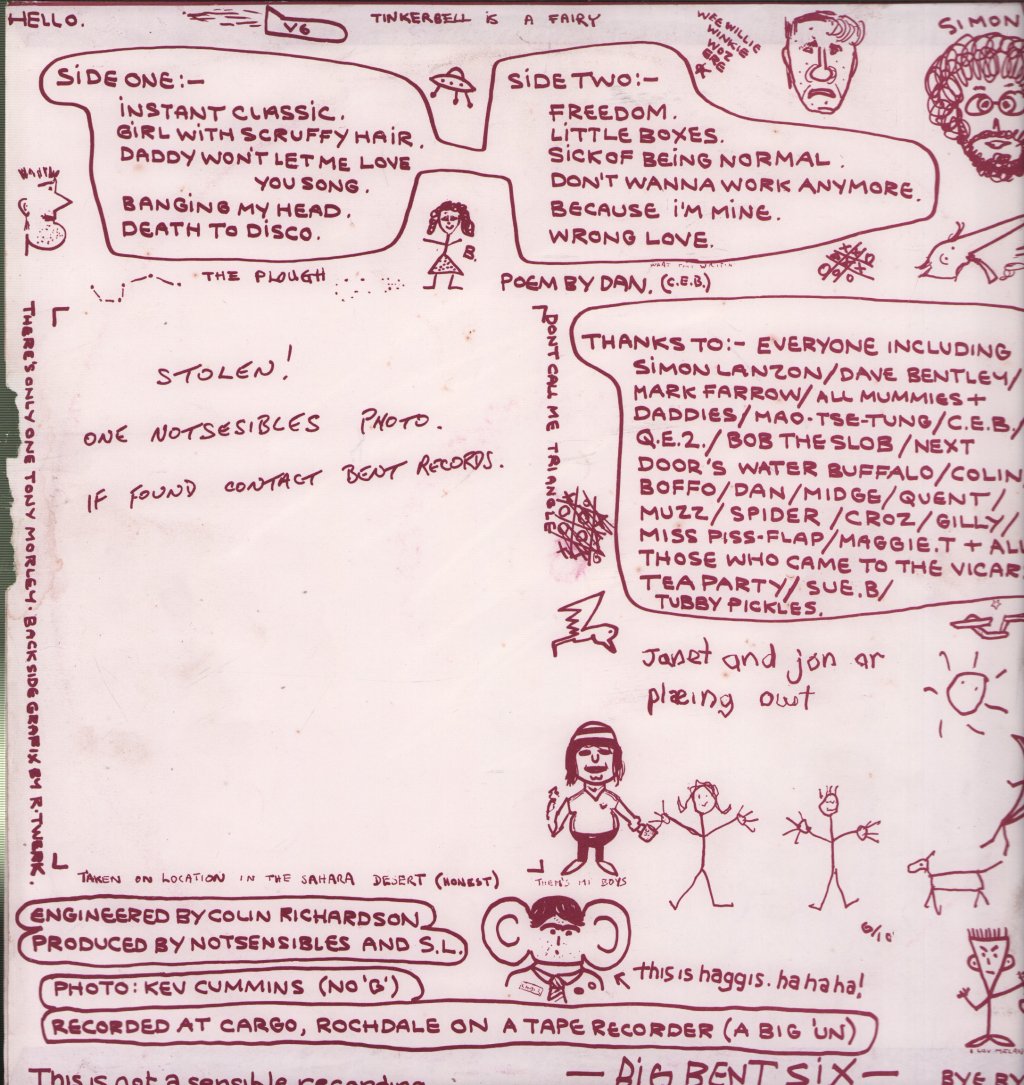 HELLO.
V6
TINKERBELL IS A FAIRY
WEE WILLIE
WINKIE
WOZ
ERE
SIMON
SIDE ONE:-
INSTANT CLASSIC.
GIRL WITH SCRUFFY HAIR.
DADDY WON'T LET ME LOVE
YOU SONG.
BANGING MY HEAD.
DEATH TO DISCO.
SIDE TWO:-
FREEDOM.
LITTLE BOXES.
SICK OF BEING NORMAL.
DON'T WANNA WORK ANYMORE.
BECAUSE I'M MINE.
WRONG LOVE.
B.
THE PLOUGH
POEM BY DAN. (C.E.B.)
THERE'S ONLY ONE TONY MORLEY. BACKSIDE GRAFIX BY R. TWERK.
STOLEN!
ONE NOTSESIBLES PHOTO.
IF FOUND CONTACT BENT RECORDS.
DONT CALL ME TRIANGLE
THANKS TO:- EVERYONE INCLUDING
SIMON LANZON/DAVE BENTLEY/
MARK FARROW/ALL MUMMIES +
DADDIES/MAO-TSE-TUNG/C.E.B./
Q.E.2./BOB THE SLOB/NEXT
DOOR'S WATER BUFFALO/COLIN
BOFFO/DAN/MIDGE/QUENT/
MUZZ/SPIDER/CROZ/GILLY/
MISS PISS-FLAP/MAGGIE.T + ALL
THOSE WHO CAME TO THE VICAR
TEA PARTY/SUE.B/
TUBBY PICKLES.
Janet and jon ar
plæing owt
TAKEN ON LOCATION IN THE SAHARA DESERT (HONEST)
THEM'S MI BOYS
6/10
ENGINEERED BY COLIN RICHARDSON
PRODUCED BY NOTSENSIBLES AND S.L.
this is haggis. ha ha ha!
PHOTO: KEV CUMMINS (NO 'B')
RECORDED AT CARGO, ROCHDALE ON A TAPE RECORDER (A BIG 'UN)
This is not a sensible recording
— BIG BENT SIX —
BYE BY